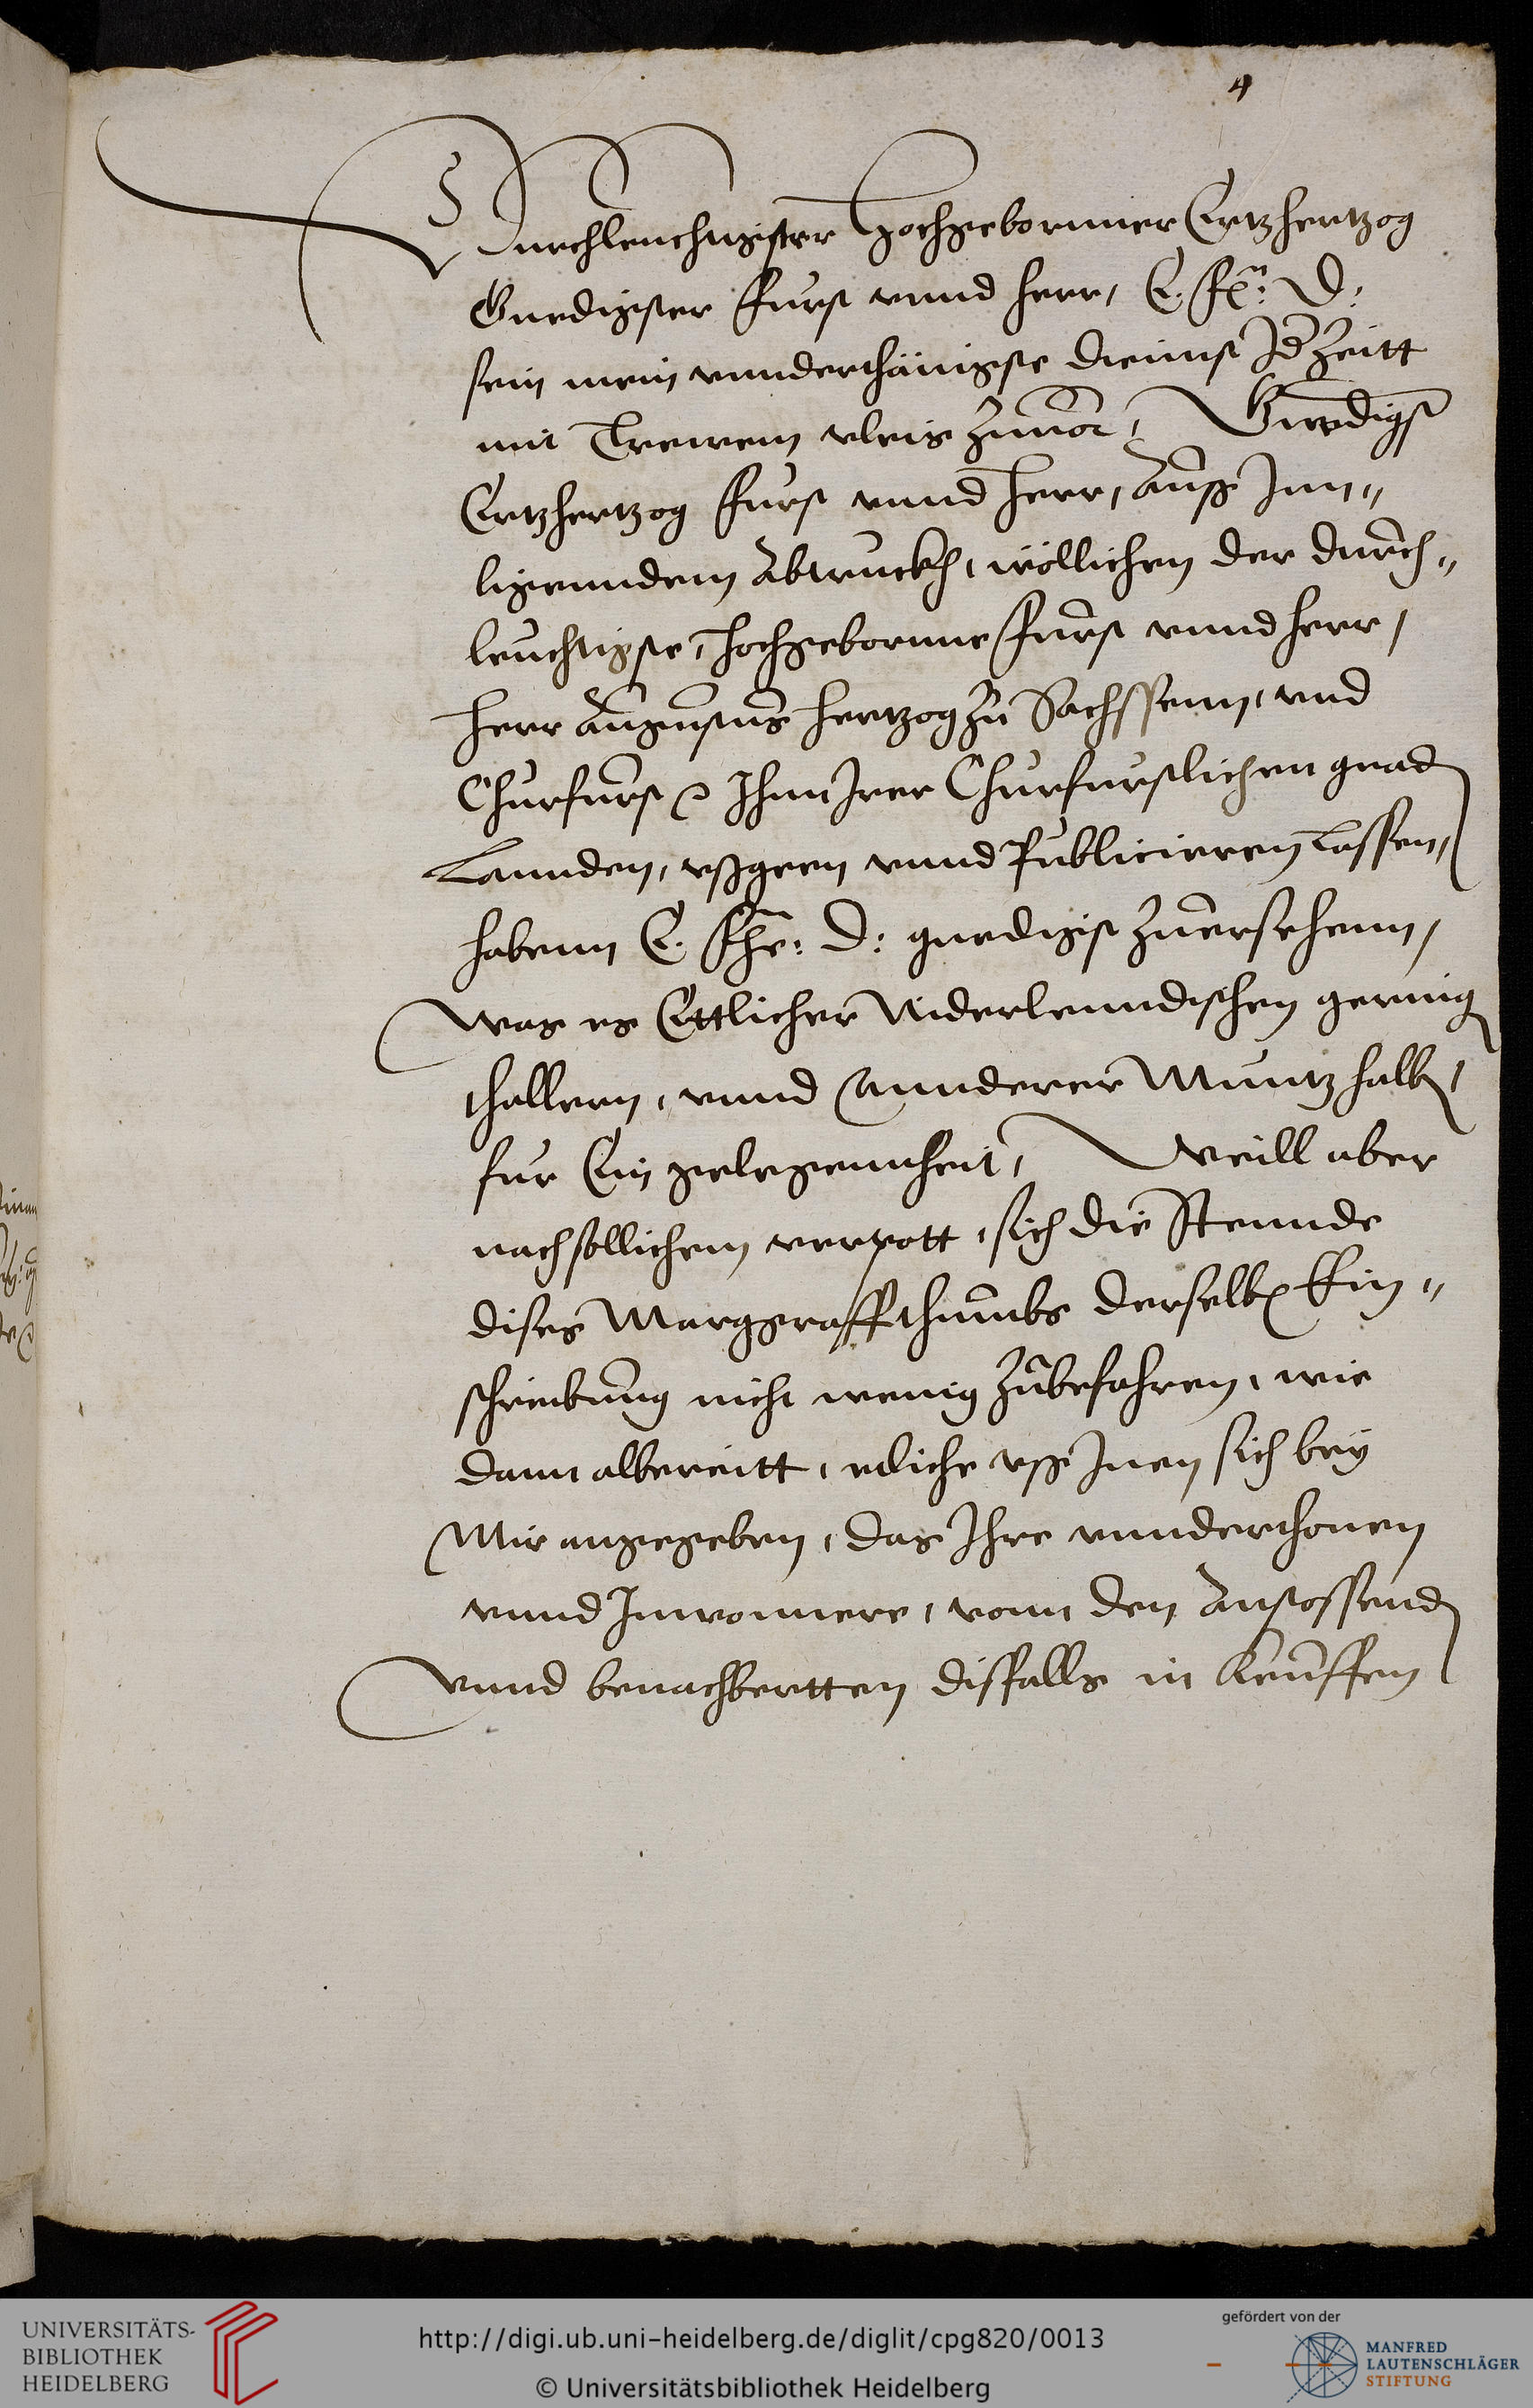 4
Durchleuchtigster Hochgebornner Ertzhertzog
Gnedigster Furst vnnd herr, E. Fr: D:
sein mein vnnderthänigste dienst Jdzeitt
mit Trewem vleis zuuor, Gnedigst
Ertzhertzog Furst vnnd Herr, Auß Inn-
ligenndem Abtruckh, wöllichen der durch-
leuchtigste, Hochgebornne Furst vnnd Herr,
Herr Augustus Hertzog zu Sachssenn, vnd
Churfurst Ihnn Irer Churfurstlichen gnad
Lannden, vßgeen vnnd Publicieren Lassen,
habenn E. Fr: D: gnedigist zuersehenn,
Was es Ettlicher Niderlenndischen gering
thallern, vnnd Annderer Muntz halb,
fur Ein gelegennheit, Weill aber
nach sollichem verpott, sich die Stennde
dises Marggraffthumbs derselb Ein-
schiebung nicht wenig zubefahren, wie
dann albereitt, etliche vß Inen sich bey
Mir angegeben, das Ihre vnnderthonen
vnnd Inwonnere, vonn den Anstossend
Vnnd benachbertten disfalls in Keuffen
UNIVERSITÄTS-
BIBLIOTHEK
HEIDELBERG
http://digi.ub.uni-heidelberg.de/diglit/cpg820/0013
© Universitätsbibliothek Heidelberg
gefördert von der
MANFRED
LAUTENSCHLÄGER
STIFTUNG